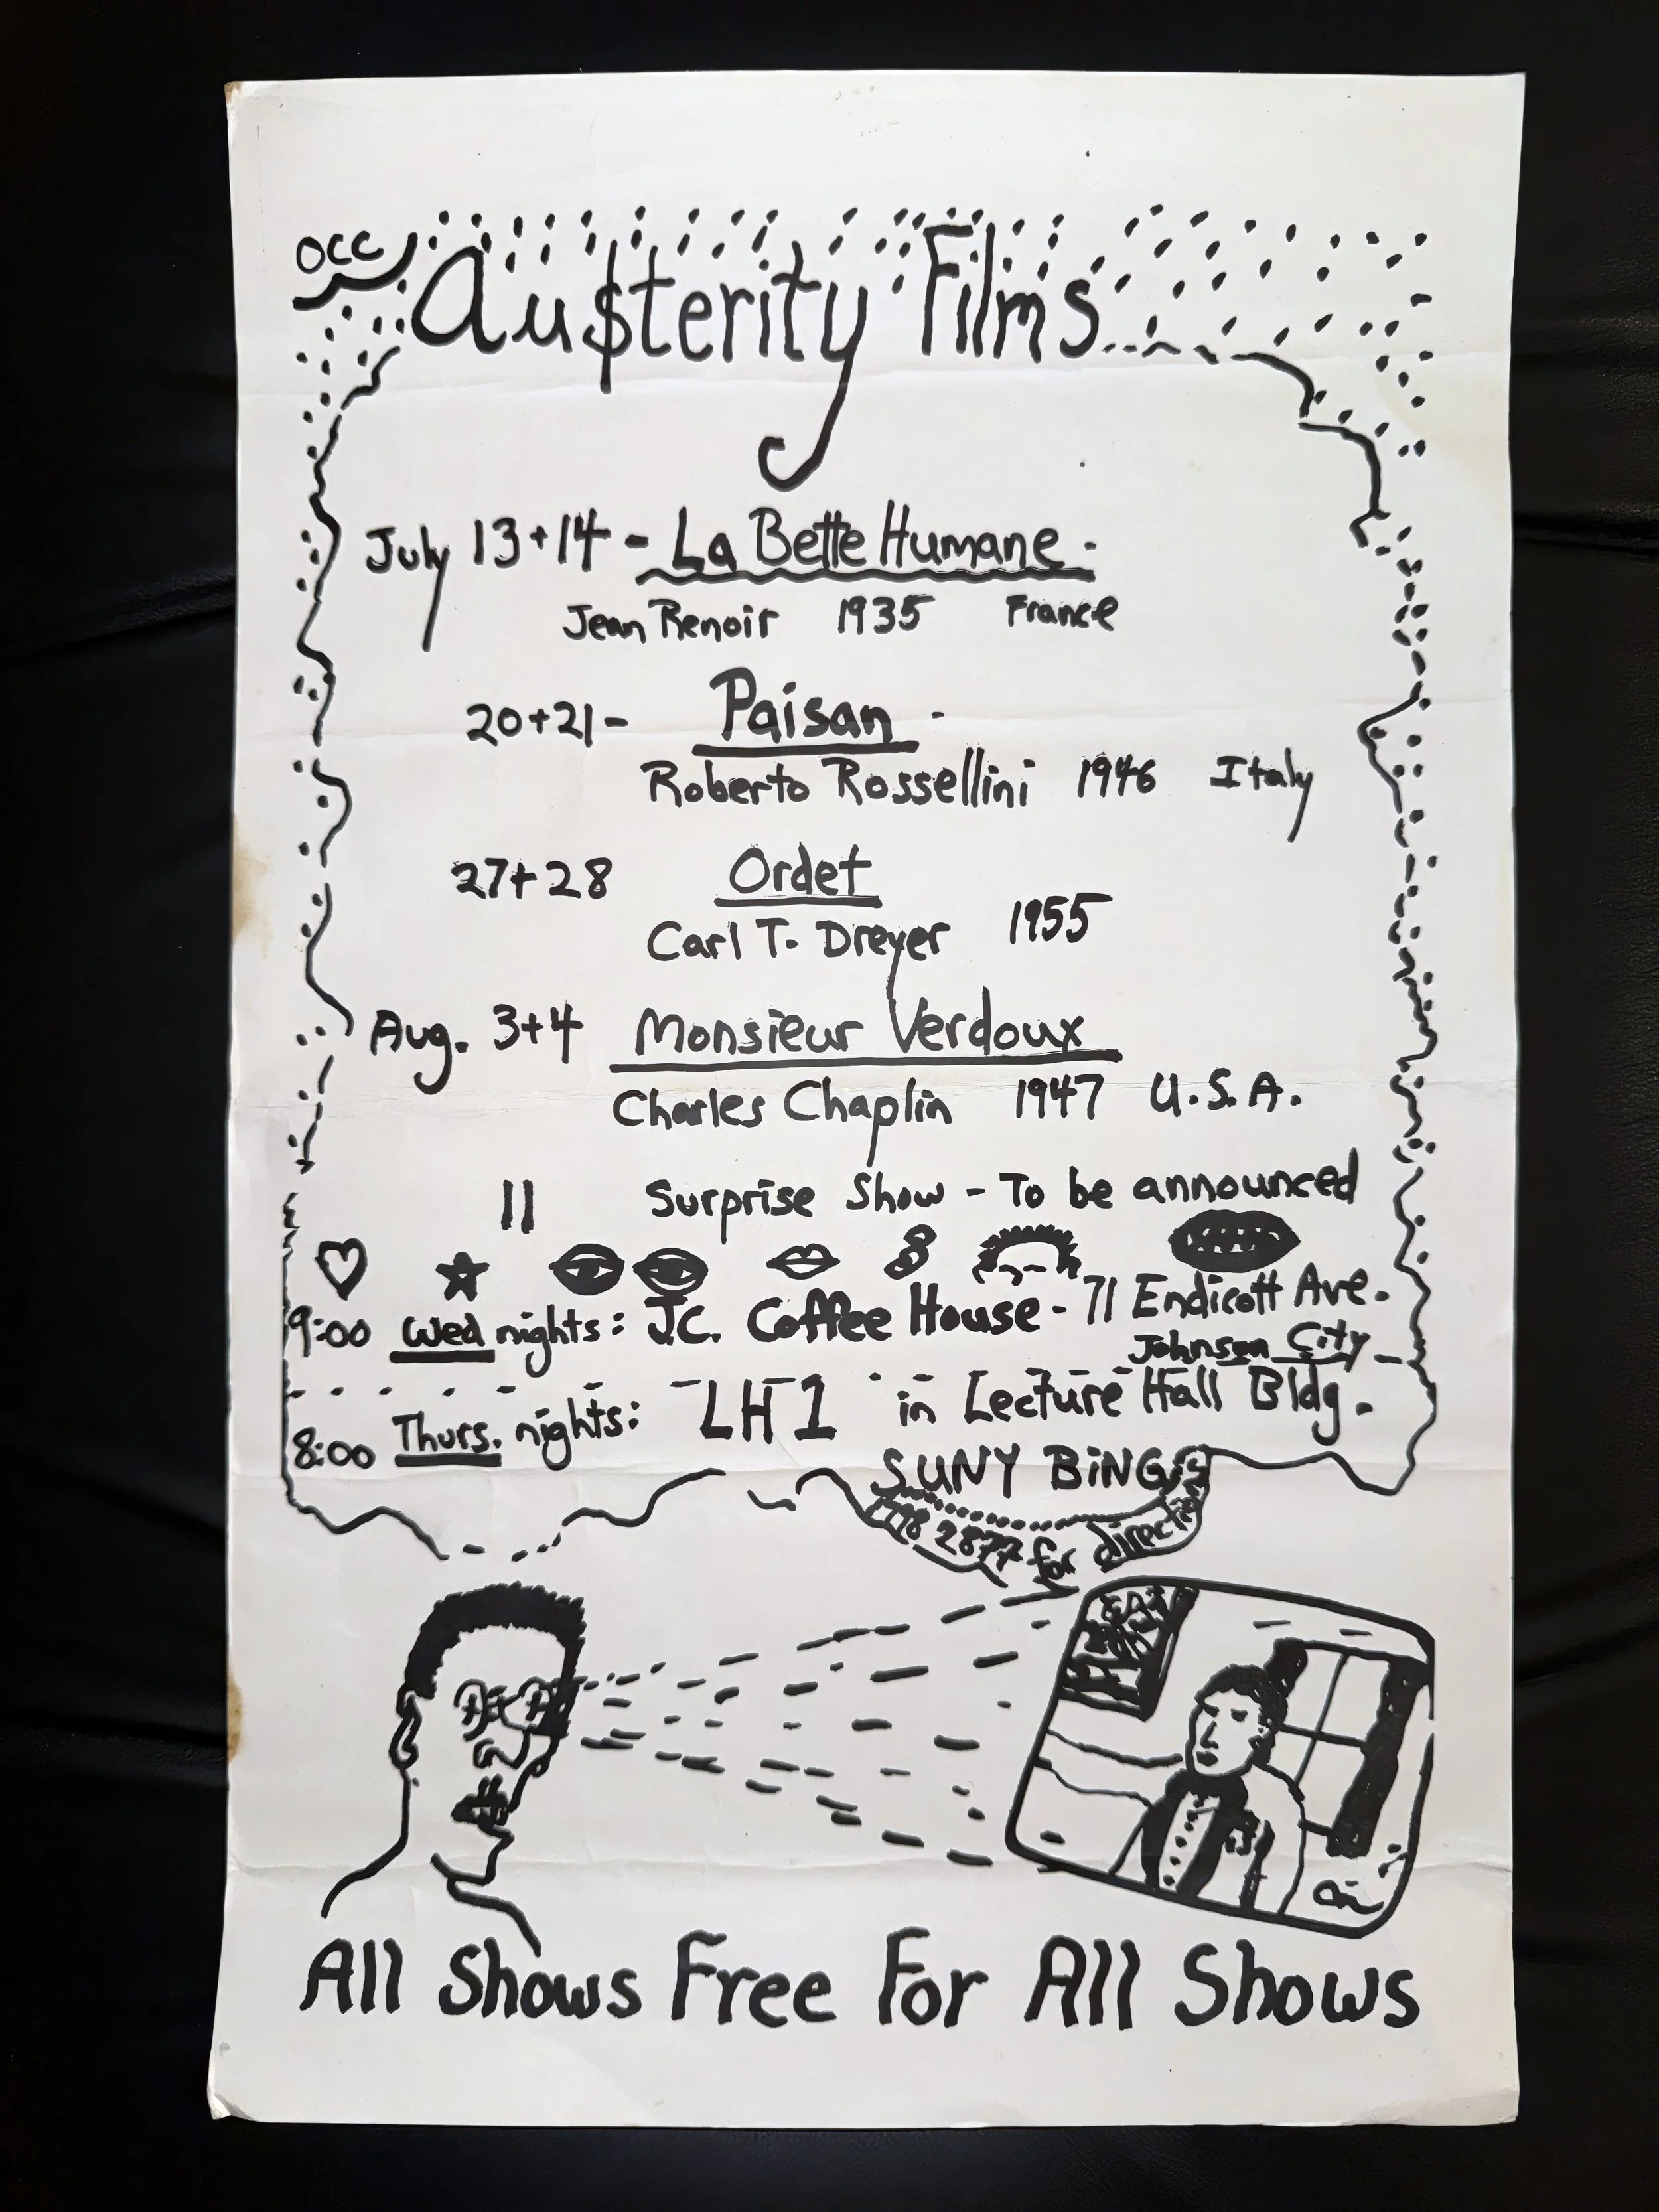 OCC
Au$terity Films...
July 13+14 - La Bette Humane -
Jean Renoir 1935 France
20+21 - Paisan -
Roberto Rossellini 1946 Italy
27+28 Ordet
Carl T. Dreyer 1955
Aug. 3+4 Monsieur Verdoux
Charles Chaplin 1947 U.S.A.
11 Surprise Show - To be announced
9:00 Wed nights: J.C. Coffee House - 71 Endicott Ave.
Johnson City
8:00 Thurs. nights: LH1 in Lecture Hall Bldg.
SUNY BiNG
798 2877 for
All Shows Free For All Shows